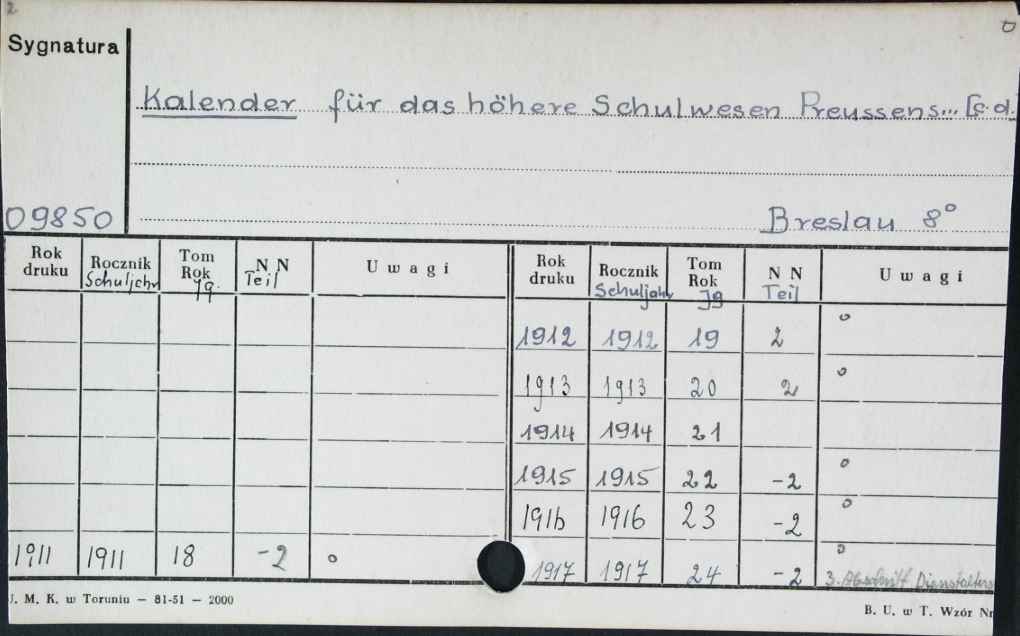 2
D
Sygnatura
Kalender für das höhere Schulwesen Preussens... [c.d.
09850
Breslau 8°
Rok druku | Rocznik Schuljahr | Tom Rok Jg. | N N Teil | Uwagi | Rok druku | Rocznik Schuljahr | Tom Rok Jg | N N Teil | Uwagi
1912 | 1912 | 19 | 2 | o
1913 | 1913 | 20 | 2 | o
1914 | 1914 | 21
1915 | 1915 | 22 | -2 | o
1916 | 1916 | 23 | -2 | o
1911 | 1911 | 18 | -2 | o | 1917 | 1917 | 24 | -2 | o
3. Abschnitt Dienstalters
J. M. K. w Toruniu — 81-51 — 2000
B. U. w T. Wzór Nr